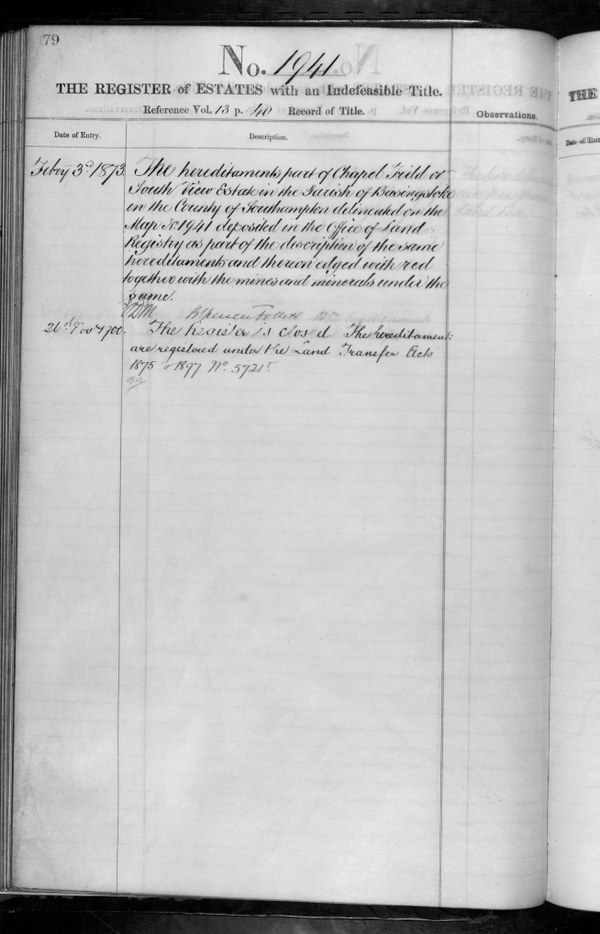 79
No. 1941
THE REGISTER of ESTATES with an Indefeasible Title.
Reference Vol. 13 p. 40 Record of Title.
Observations.
Date of Entry.
Description.
Febry 3rd 1873.
The hereditaments part of Chapel Field or
South View Estate in the Parish of Basingstoke
in the County of Southampton delineated on the
Map No 1941 deposited in the Office of Land
Registry as part of the description of the same
hereditaments and thereon edged with red
together with the mines and minerals under the
same.
B Spencer Follett
26
The register is closed The hereditaments
are registered under the Land Transfer Acts
1875 & 1897 No. 5721
THE